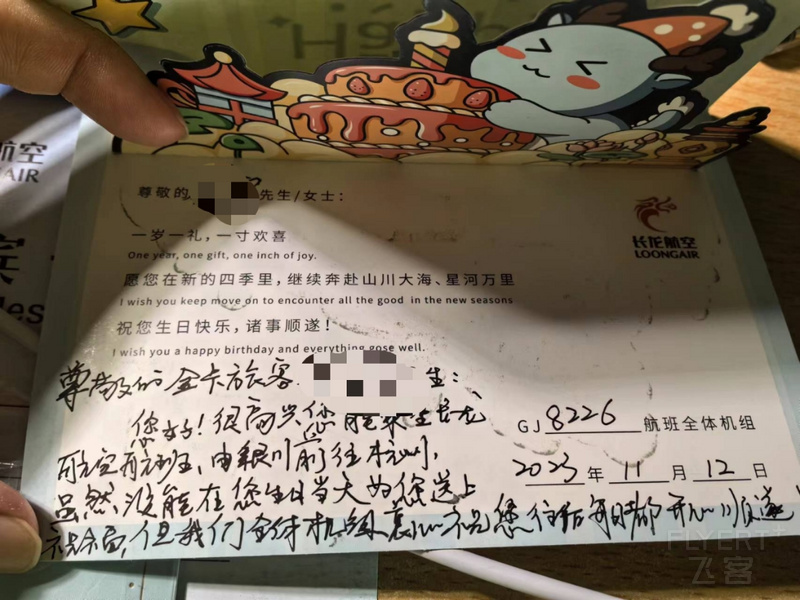 航空
AIR
宾
les
尊敬的 先生/女士：
长龙航空
LOONGAIR
一岁一礼，一寸欢喜
One year, one gift, one inch of joy.
愿您在新的四季里，继续奔赴山川大海、星河万里
I wish you keep move on to encounter all the good in the new seasons
祝您生日快乐，诸事顺遂！
I wish you a happy birthday and everything gose well.
尊敬的金卡旅客 生：
您好！很高兴您 乘坐长龙
航空航班，由银川前往杭州，
虽然没能在您生日当天为您送上
祝福，但我们全体机组衷心祝您往后每日都开心顺遂！
GJ 8226 航班全体机组
2023 年 11 月 12 日
FLYERT
飞客